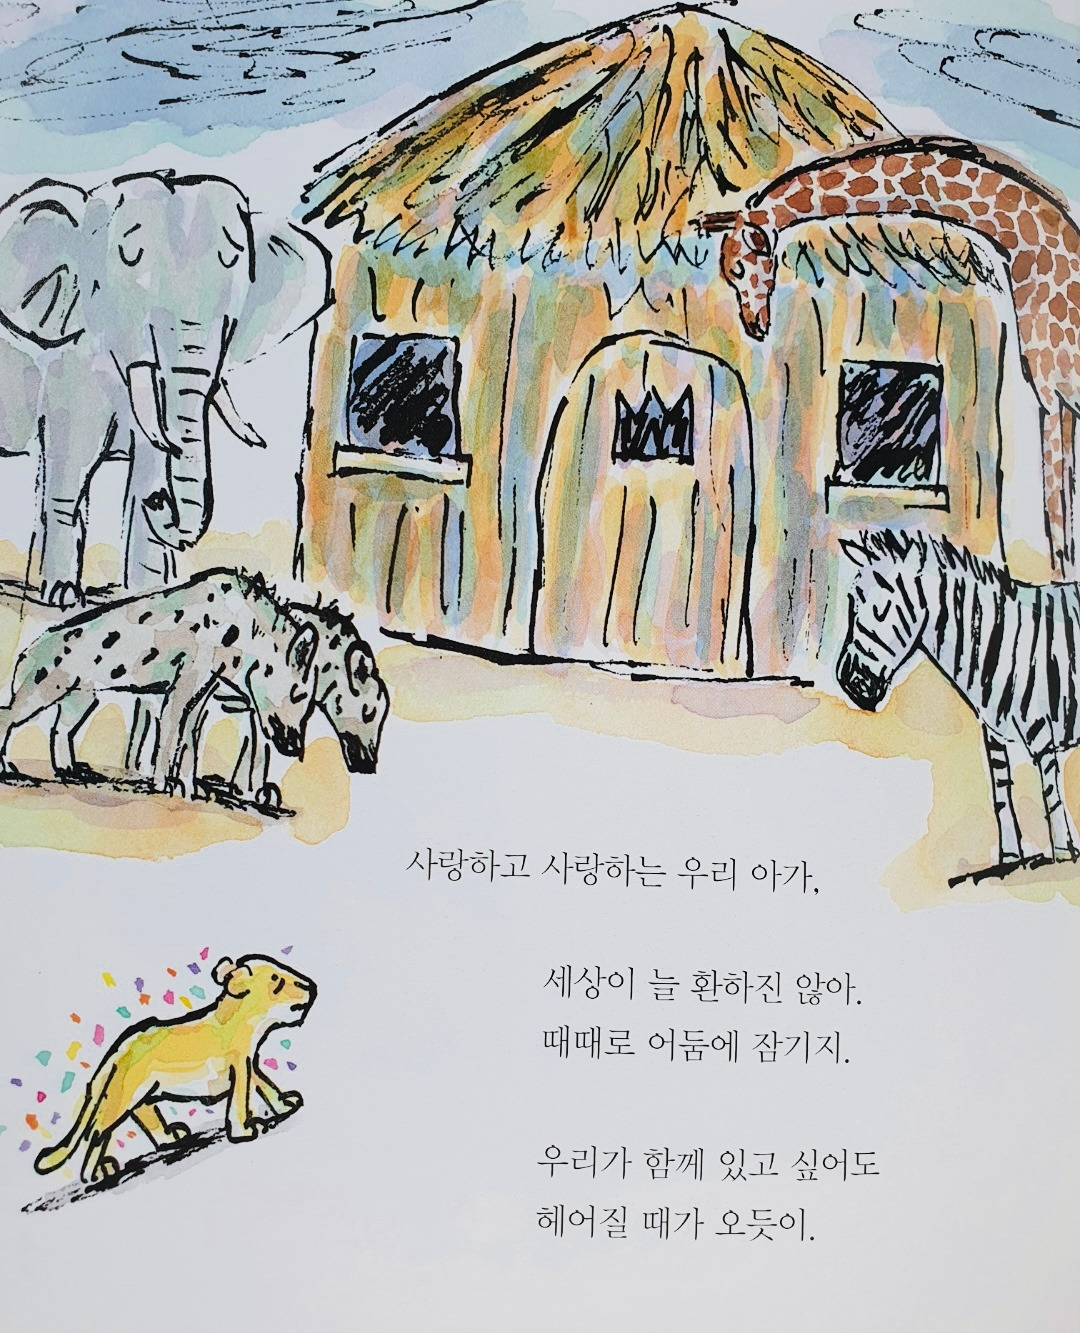 사랑하고 사랑하는 우리 아가,
세상이 늘 환하진 않아.
때때로 어둠에 잠기지.
우리가 함께 있고 싶어도
헤어질 때가 오듯이.